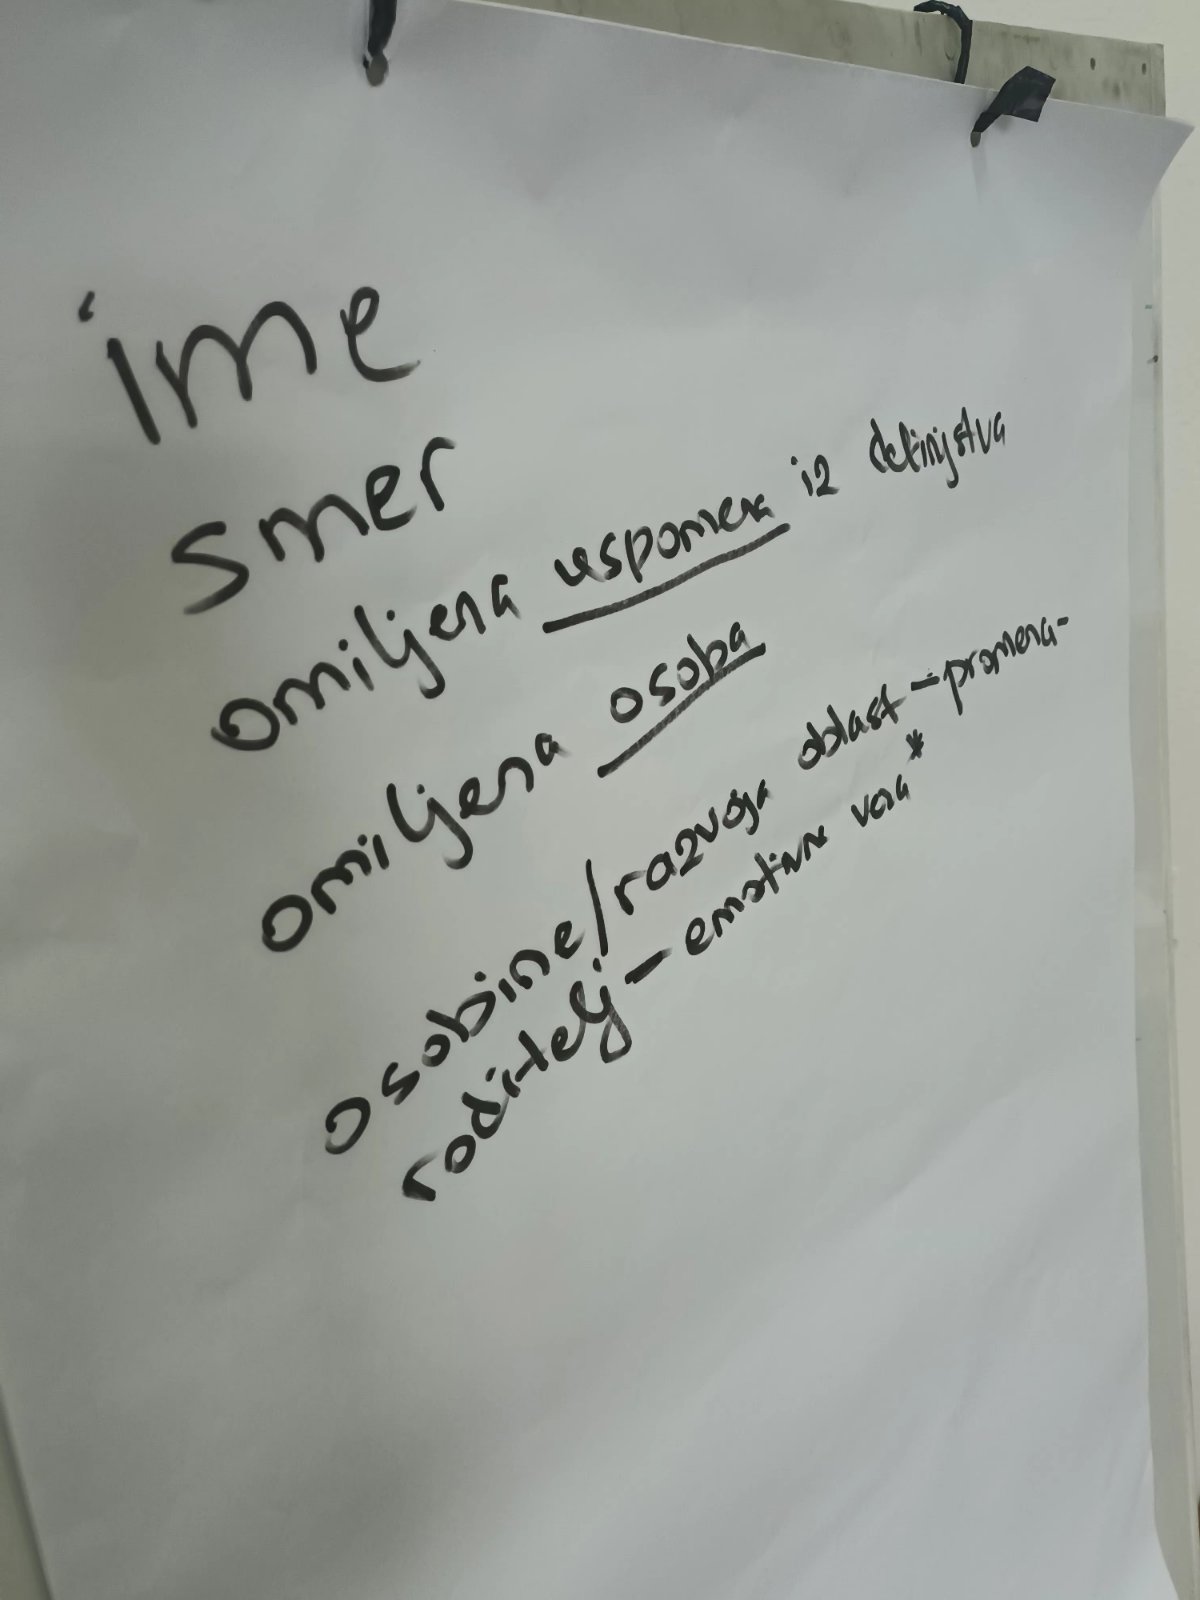 ime
smer
omiljena uspomena iz detinjstva
omiljena osoba
osobine/razvoja oblast - promena-
roditelj - emotivna veza*